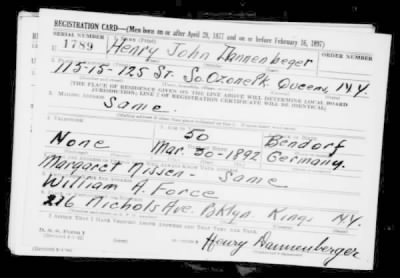 REGISTRATION CARD—(Men born on or after April 28, 1877 and on or before February 16, 1897)
SERIAL NUMBER 1. NAME (Print) ORDER NUMBER
1789 Henry John Dannenbeger
115-15-125 St. So. Ozone Pk Queens, N.Y.
[THE PLACE OF RESIDENCE GIVEN ON THE LINE ABOVE WILL DETERMINE LOCAL BOARD
JURISDICTION; LINE 2 OF REGISTRATION CERTIFICATE WILL BE IDENTICAL]
3. MAILING ADDRESS
Same
4. TELEPHONE
50 Bendorf
None Mar 30-1892 Germany.
Margaret Nissen - Same
William A. Force
216 Nichols Ave. Bklyn. Kings N.Y.
I AFFIRM THAT I HAVE VERIFIED ABOVE ANSWERS AND THAT THEY ARE TRUE.
D. S. S. Form 1
Henry Dannenberger